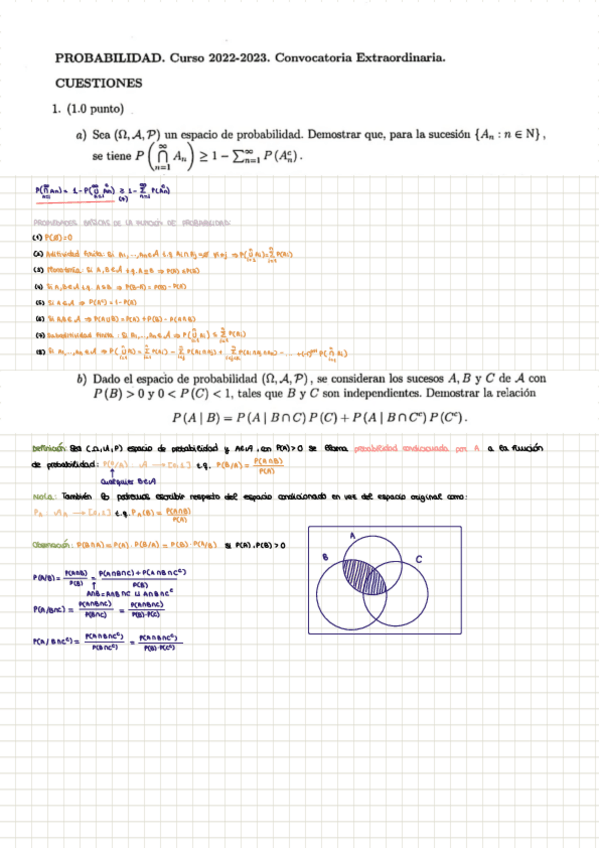 PROBABILIDAD. Curso 2022-2023. Convocatoria Extraordinaria.
CUESTIONES
1. (1.0 punto)
a) Sea (Ω, A, P) un espacio de probabilidad. Demostrar que, para la sucesión {Aₙ : n ∈ N} ,
se tiene P(⋂_{n=1}^{∞} Aₙ) ≥ 1 − ∑_{n=1}^{∞} P(Aₙᶜ) .
PROPIEDADES BÁSICAS DE LA FUNCIÓN DE PROBABILIDAD:
(2) Aditividad finita: Si A₁,...,Aₙ∈A
(3) Monotonía: Si A,B∈A t.q. A⊆B ⇒ P(A)≤P(B)
(5) Si A∈A ⇒ P(Aᶜ)=1-P(A)
(6) Si A,B∈A ⇒ P(A∪B)=P(A)+P(B)-P(A∩B)
(7) Subaditividad finita: Si A₁,...,Aₙ∈A
b) Dado el espacio de probabilidad (Ω, A, P) , se consideran los sucesos A, B y C de A con
P(B) > 0 y 0 < P(C) < 1, tales que B y C son independientes. Demostrar la relación
P(A | B) = P(A | B ∩ C) P(C) + P(A | B ∩ Cᶜ) P(Cᶜ) .
Definición: Sea (Ω,A,P) espacio de probabilidad y A∈A, con P(A)>0 se llama probabilidad condicionada por A a la función
de probabilidad: P(·/A): A → [0,1] t.q. P(B/A) = P(A∩B)/P(A)
Cualquier B∈A
Nota: También podemos escribir respecto del espacio condicionado en vez del espacio original como:
t.q. P_A(B) = P(A∩B)/P(A)
Observación: P(B∩A)=P(A)·P(B/A) = P(B)·P(A/B) si P(A),P(B)>0
P(A/B) = P(A∩B)/P(B) = P(A∩B∩C)+P(A∩B∩Cᶜ)/P(B)
A∩B=A∩B∩C ⊔ A∩B∩Cᶜ
P(A/B∩C) = P(A∩B∩C)/P(B∩C) = P(A∩B∩C)/P(B)·P(C)
P(A/B∩Cᶜ) = P(A∩B∩Cᶜ)/P(B∩Cᶜ) = P(A∩B∩Cᶜ)/P(B)·P(Cᶜ)
A
B
C